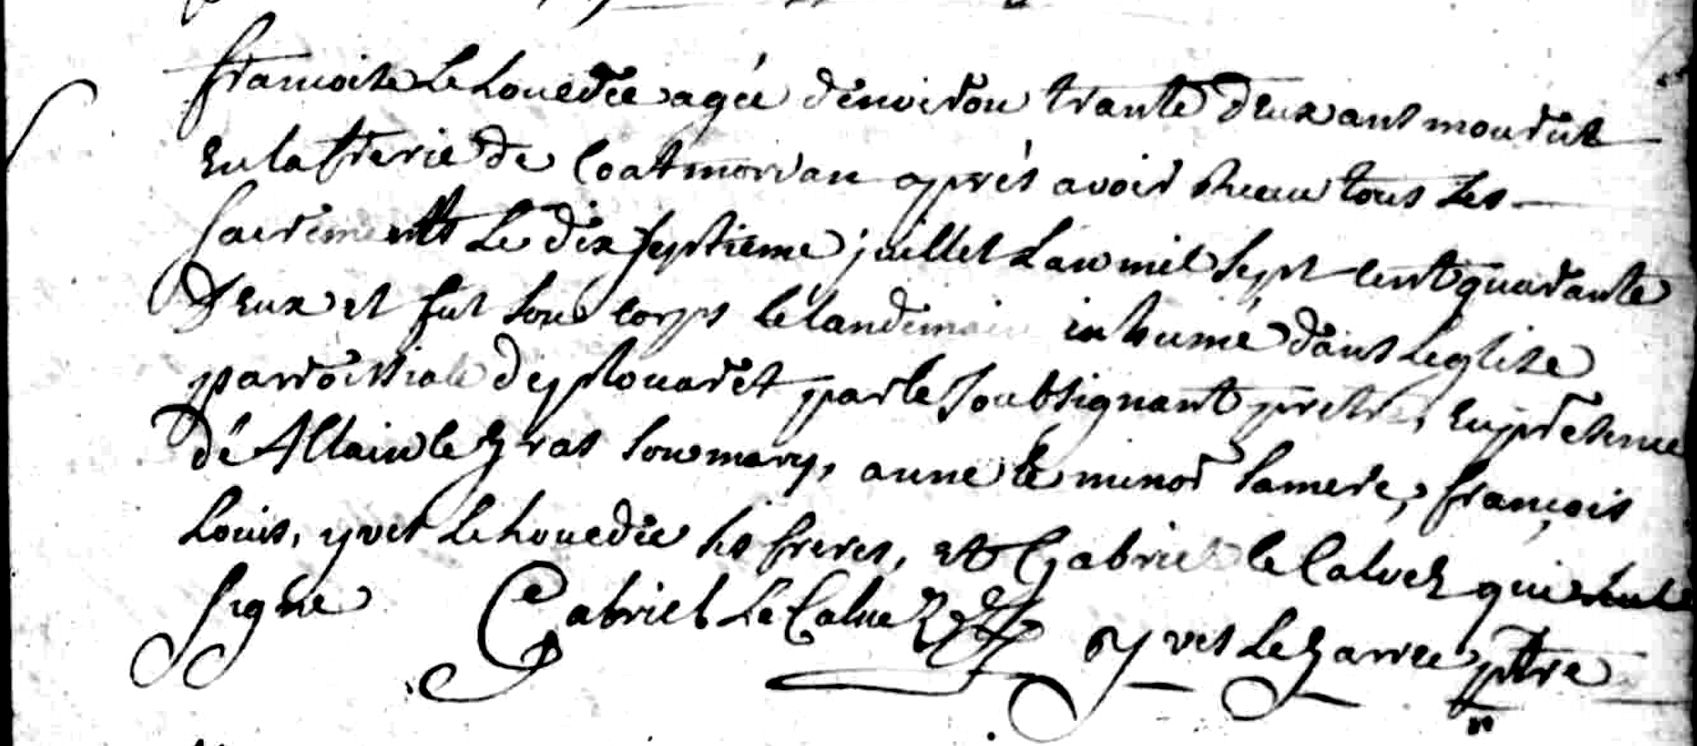 francoise Le houedec agée denviron trante deux ans mourut
en la frerie de Coatmorvan apres avoir receu tous Les
sacrements Le dix septieme juillet Lan mil sept cent quarante
deux et fut son corps le landemain inhumé dans Leglise
parroissiale de plouaret par le soubsignant pretre, en presence
de Allain le gras son mary, anne le minor sa mere, françois
Louis, yves Le houedec ses freres, et Gabriel le Calvez qui seul
signe Gabriel Le Calvez yves Le garrec ptre